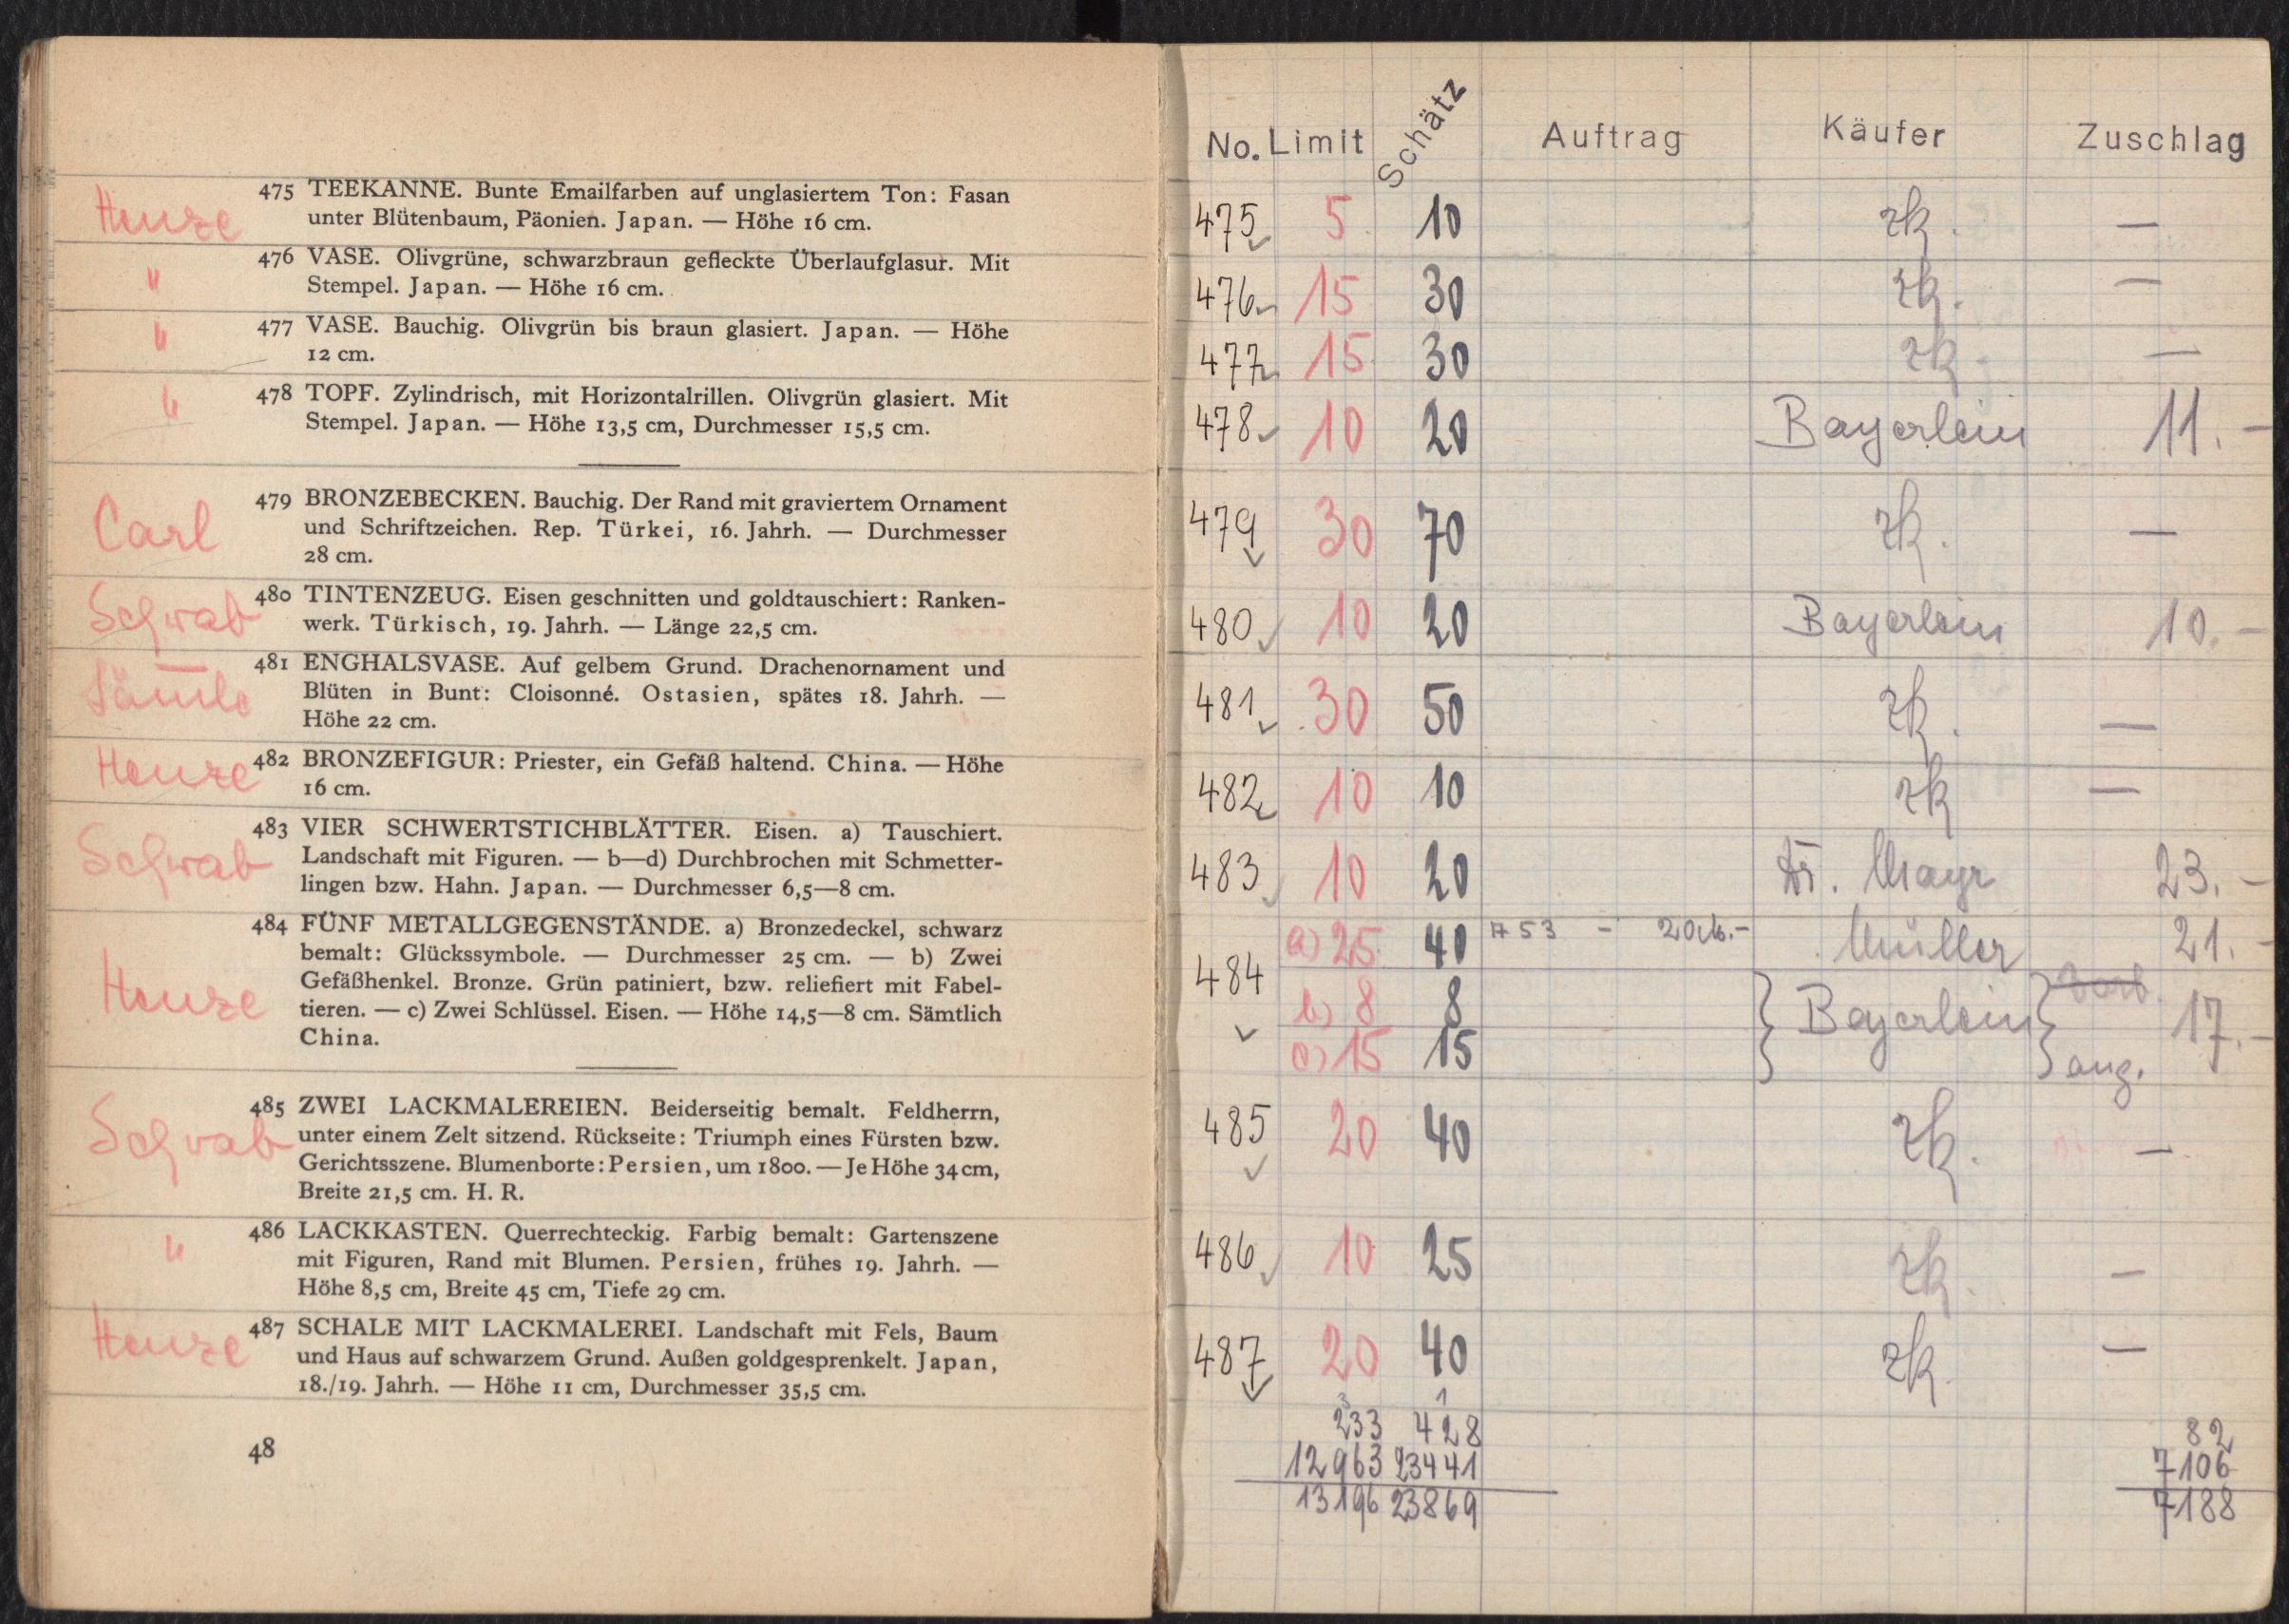 Henze 475 TEEKANNE. Bunte Emailfarben auf unglasiertem Ton: Fasan
unter Blütenbaum, Päonien. Japan. — Höhe 16 cm.
" 476 VASE. Olivgrüne, schwarzbraun gefleckte Überlaufglasur. Mit
Stempel. Japan. — Höhe 16 cm.
" 477 VASE. Bauchig. Olivgrün bis braun glasiert. Japan. — Höhe
12 cm.
" 478 TOPF. Zylindrisch, mit Horizontalrillen. Olivgrün glasiert. Mit
Stempel. Japan. — Höhe 13,5 cm, Durchmesser 15,5 cm.
Carl 479 BRONZEBECKEN. Bauchig. Der Rand mit graviertem Ornament
und Schriftzeichen. Rep. Türkei, 16. Jahrh. — Durchmesser
28 cm.
Schwab 480 TINTENZEUG. Eisen geschnitten und goldtauschiert: Ranken-
werk. Türkisch, 19. Jahrh. — Länge 22,5 cm.
481 ENGHALSVASE. Auf gelbem Grund. Drachenornament und
Blüten in Bunt: Cloisonné. Ostasien, spätes 18. Jahrh. —
Höhe 22 cm.
Henze 482 BRONZEFIGUR: Priester, ein Gefäß haltend. China. — Höhe
16 cm.
Schwab 483 VIER SCHWERTSTICHBLÄTTER. Eisen. a) Tauschiert.
Landschaft mit Figuren. — b—d) Durchbrochen mit Schmetter-
lingen bzw. Hahn. Japan. — Durchmesser 6,5—8 cm.
Henze 484 FÜNF METALLGEGENSTÄNDE. a) Bronzedeckel, schwarz
bemalt: Glückssymbole. — Durchmesser 25 cm. — b) Zwei
Gefäßhenkel. Bronze. Grün patiniert, bzw. reliefiert mit Fabel-
tieren. — c) Zwei Schlüssel. Eisen. — Höhe 14,5—8 cm. Sämtlich
China.
Schwab 485 ZWEI LACKMALEREIEN. Beiderseitig bemalt. Feldherrn,
unter einem Zelt sitzend. Rückseite: Triumph eines Fürsten bzw.
Gerichtsszene. Blumenborte: Persien, um 1800. — Je Höhe 34 cm,
Breite 21,5 cm. H. R.
" 486 LACKKASTEN. Querrechteckig. Farbig bemalt: Gartenszene
mit Figuren, Rand mit Blumen. Persien, frühes 19. Jahrh. —
Höhe 8,5 cm, Breite 45 cm, Tiefe 29 cm.
Henze 487 SCHALE MIT LACKMALEREI. Landschaft mit Fels, Baum
und Haus auf schwarzem Grund. Außen goldgesprenkelt. Japan,
18./19. Jahrh. — Höhe 11 cm, Durchmesser 35,5 cm.
48
No. Limit Schätz Auftrag Käufer Zuschlag
475 5 10 zk. —
476 15 30 zk. —
477 15 30 zk. —
478 10 20 Bayerlein 11.—
479 30 70 zk. —
480 10 20 Bayerlein 10.—
481 30 50 zk. —
482 10 10 zk —
483 10 20 Dr. Mayr 23.—
484 a) 25 40 A 53 - 20 M.- Müller 21.—
b) 8 8 Bayerlein 17.—
c) 15 15 ang.
485 20 40 zk. —
486 10 25 zk. —
487 20 40 zk. —
233 428 82
12963 23441 7106
13196 23869 7188